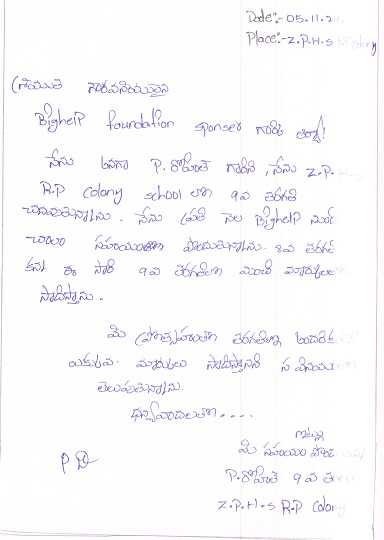 Date:- 05.11.2
Place:- Z.P.H.s R.P colony
శ్రీయుత గౌరవనీయులైన
BigheIP foundation sponser గారికి ఆర్యా!
నేను అనగా P. రోహిత్ గారిని, నేను Z.P.H.s
R.P Colony school లొ 9వ తరగతి
చదువుతున్నాను. నేను ప్రతి నెల BigheIP నుండి
చాలా సహాయంతొ పొందుతున్నాను. 8వ తరగతి
కన్నా ఈ సారి 9వ తరగతిలొ మంచి మార్కులు
సాదిస్తాను.
మీ ప్రొత్సాహంతొ తరగతిలొ అందరికన్నా
ఎక్కువ మార్కులు సాదిస్తానని స వినయంగా
తెలుపుతున్నాను.
ధన్యవాదలతొ....
ఇట్లు
మీ సహాయం
P. రోహిత్ 9వ తరగతి
P D
Z.P.H.s R.P Colony